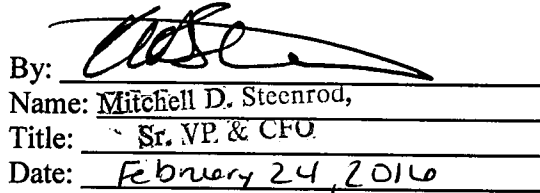 By:
Name: Mitchell D. Steenrod,
Title: Sr. VP. & CFO
Date: February 24, 2016